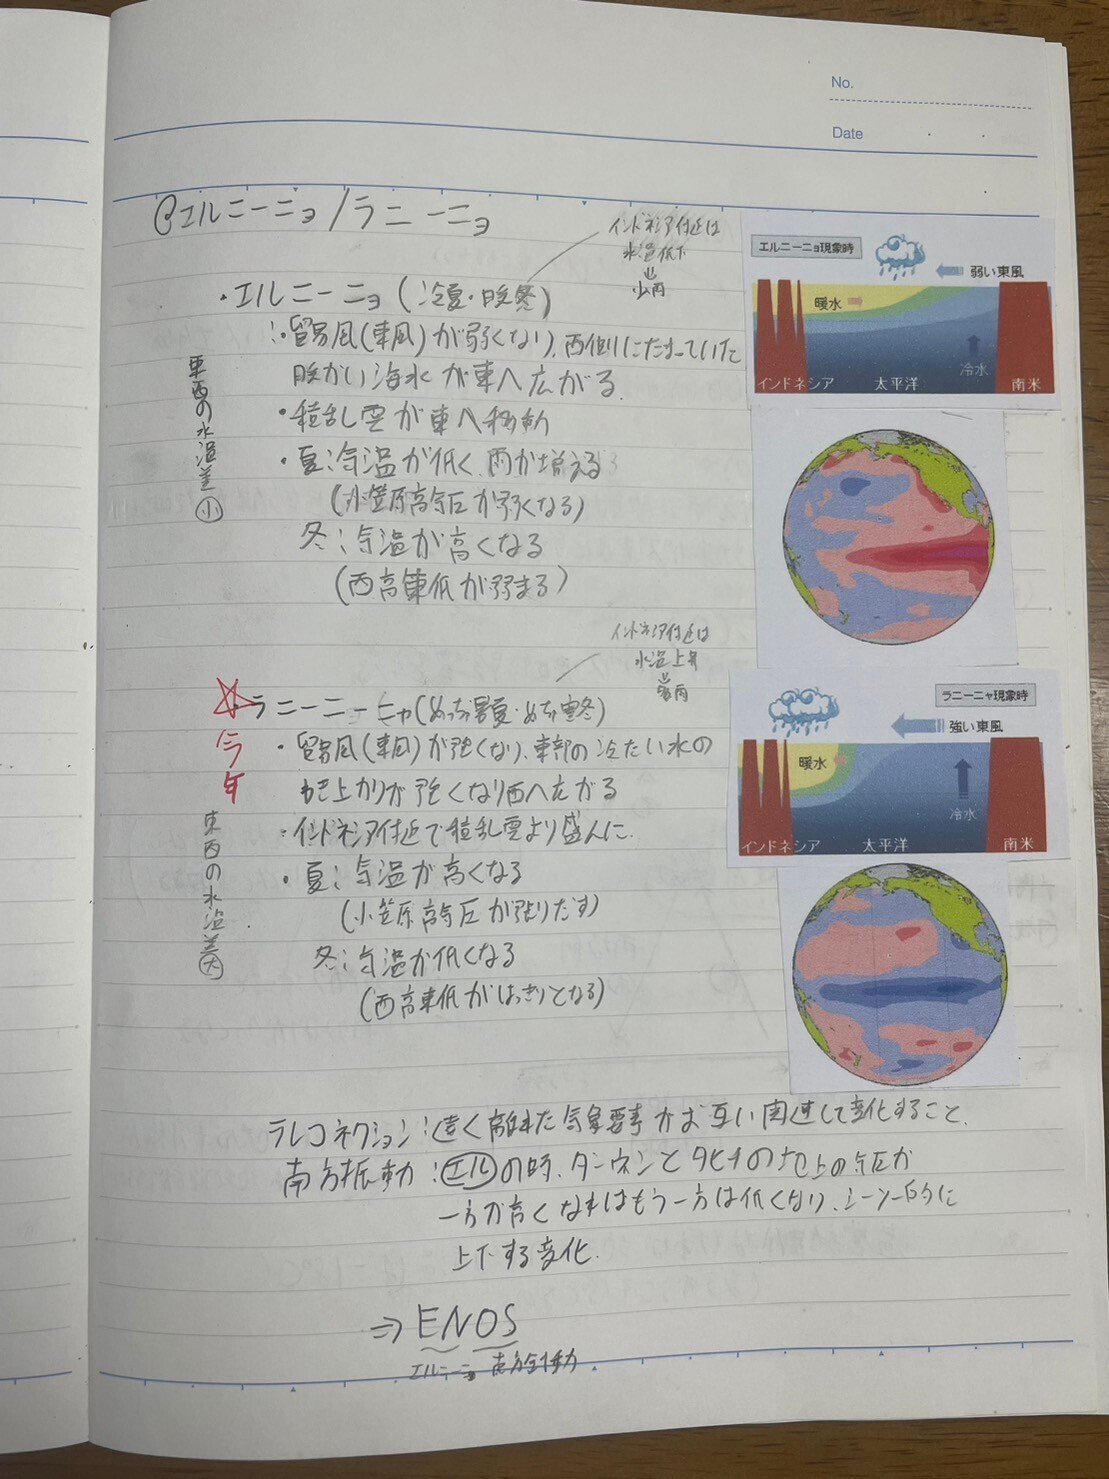 No.
Date
エルニーニョ/ラニーニョ
インドネシア付近は
水温低下
⇓
少雨
・エルニーニョ(冷夏・暖冬)
∴貿易風(東風)が弱くなり、西側にたまっていた
暖かい海水が東へ広がる.
・積乱雲が東へ移動
・夏:気温が低く、雨が増える
(小笠原高気圧が弱くなる)
冬:気温が高くなる
(西高東低が弱まる)
東西の水温差小
エルニーニョ現象時
弱い東風
暖水
冷水
インドネシア 太平洋 南米
インドネシア付近は
水温上昇
⇓
多雨
☆ラニーニーニャ(めっちゃ暑夏・めちゃ寒冬)
今年
・貿易風(東風)が強くなり、東部の冷たい水の
わき上がりが強くなり西へ広がる
・インドネシア付近で積乱雲より盛んに.
・夏:気温が高くなる
(小笠原高気圧が張りだす)
冬:気温が低くなる
(西高東低がはっきりとなる)
東西の水温差大
ラニーニャ現象時
強い東風
暖水
冷水
インドネシア 太平洋 南米
テレコネクション:遠く離れた気象要素がお互い関連して変化すること.
南方振動:エルの時、ダーウィンとタヒチの地上の気圧が
一方が高くなればもう一方は低くなり、シーソー的に
上下する変化.
⇒ENOS
エルニーニョ 南方振動